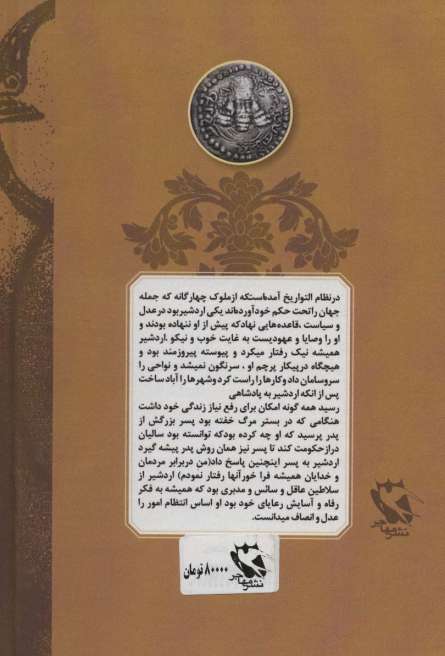 در نظام التواریخ آمده‌است‌که از ملوک چهارگانه که جمله
جهان را تحت حکم خود آورده‌اند یکی اردشیر بود در عدل
و سیاست ، قاعده‌هایی نهاد که پیش از او ننهاده بودند و
او را وصایا و عهودیست به غایت خوب و نیکو .اردشیر
همیشه نیک رفتار میکرد و پیوسته پیروزمند بود و
هیچگاه در پیکار پرچم او ، سرنگون نمیشد و نواحی را
سروسامان داد و کارها را راست کرد و شهرها را آباد ساخت
پس از آنکه اردشیر به پادشاهی
رسید همه گونه امکان برای رفع نیاز زندگی خود داشت
هنگامی که در بستر مرگ خفته بود پسر بزرگش از
پدر پرسید که او چه کرده بود که توانسته بود سالیان
دراز حکومت کند تا پسر نیز همان روش پدر پیشه گیرد
اردشیر به پسر اینچنین پاسخ داد(من دربرابر مردمان
و خدایان همیشه فرا خور آنها رفتار نمودم) اردشیر از
سلاطین عاقل و سائس و مدبری بود که همیشه به فکر
رفاه و آسایش رعایای خود بود او اساس انتظام امور را
عدل و انصاف میدانست.
نشر مهاجر
نشر مهاجر
۸۰۰۰۰ تومان